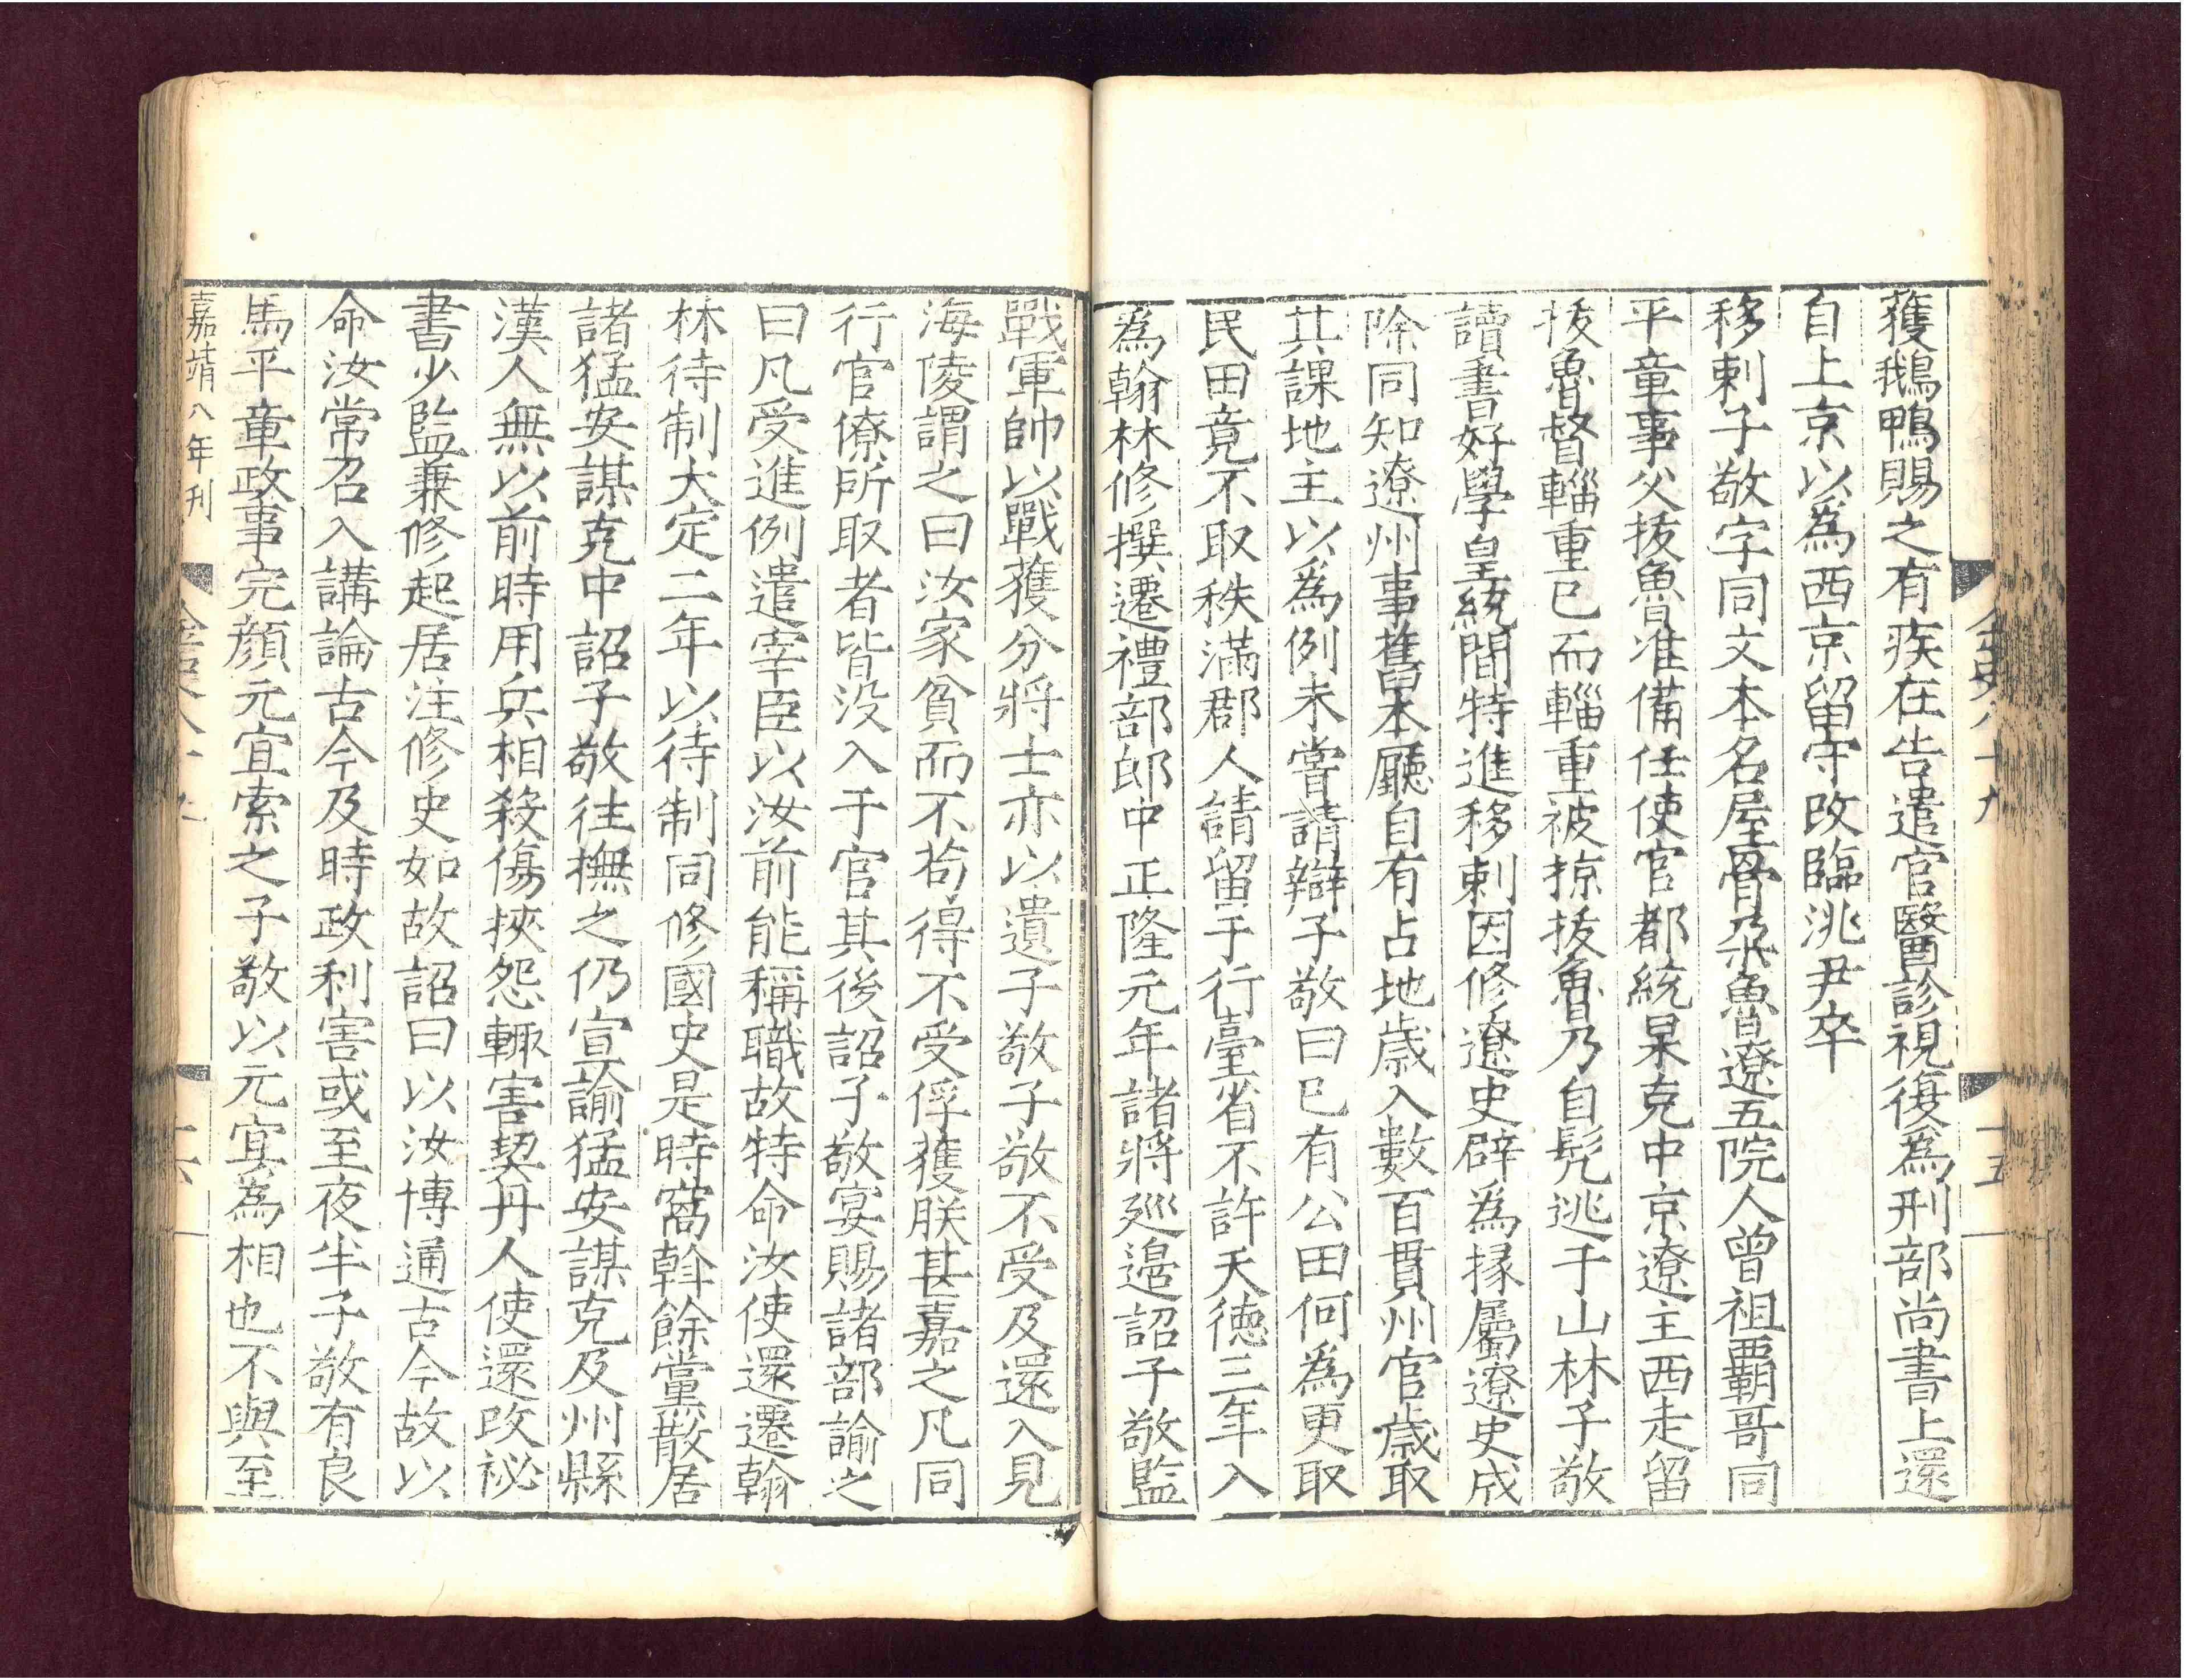 金史八十九
十五
獲鵝鴨賜之有疾在告遣官醫診視復爲刑部尚書上還
自上京以為西京留守改臨洮尹卒
移剌子敬字同文本名屋骨朶魯遼五院人曾祖覇哥同
平章事父拔魯准備任使官都統杲克中京遼主西走留
拔魯督輜重已而輜重被掠拔魯乃自髡逃于山林子敬
讀書好學皇統間特進移剌因修遼史辟為掾屬遼史成
除同知遼州事舊本廳自有占地歲入數百貫州官歲取
其課地主以為例未嘗請辯子敬曰已有公田何為更取
民田竟不取秩滿郡人請留于行臺省不許天德三年入
爲翰林修撰遷禮部郎中正隆元年諸將廵邉詔子敬監
戰軍帥以戰獲分將士亦以遺子敬子敬不受及還入見
海陵謂之曰汝家貧而不苟得不受俘獲朕甚嘉之凡同
行官僚所取者皆没入于官其後詔子敬宴賜諸部諭之
曰凡受進例遣宰臣以汝前能稱職故特命汝使還遷翰
林待制大定二年以待制同修國史是時窩斡餘黨散居
諸猛安謀克中詔子敬往撫之仍宣諭猛安謀克及州縣
漢人無以前時用兵相殺傷挾怨輙害契丹人使還改祕
書少監兼修起居注修史如故詔曰以汝博通古今故以
命汝常召入講論古今及時政利害或至夜半子敬有良
馬平章政事完顏元宜索之子敬以元宜為相也不與至
嘉靖八年刊